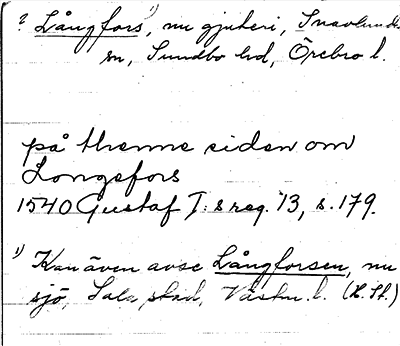 ? Långfors¹⁾, nu gjuteri, Snavlunda
sn, Sundbo hd, Örebro l.
på thenne siden om
Longefors
1540 Gustaf I:s reg. 13, s. 179.
¹⁾ Kan även avse Långforsen, nu
sjö, Sala stad, Västm. l. (H. St.)